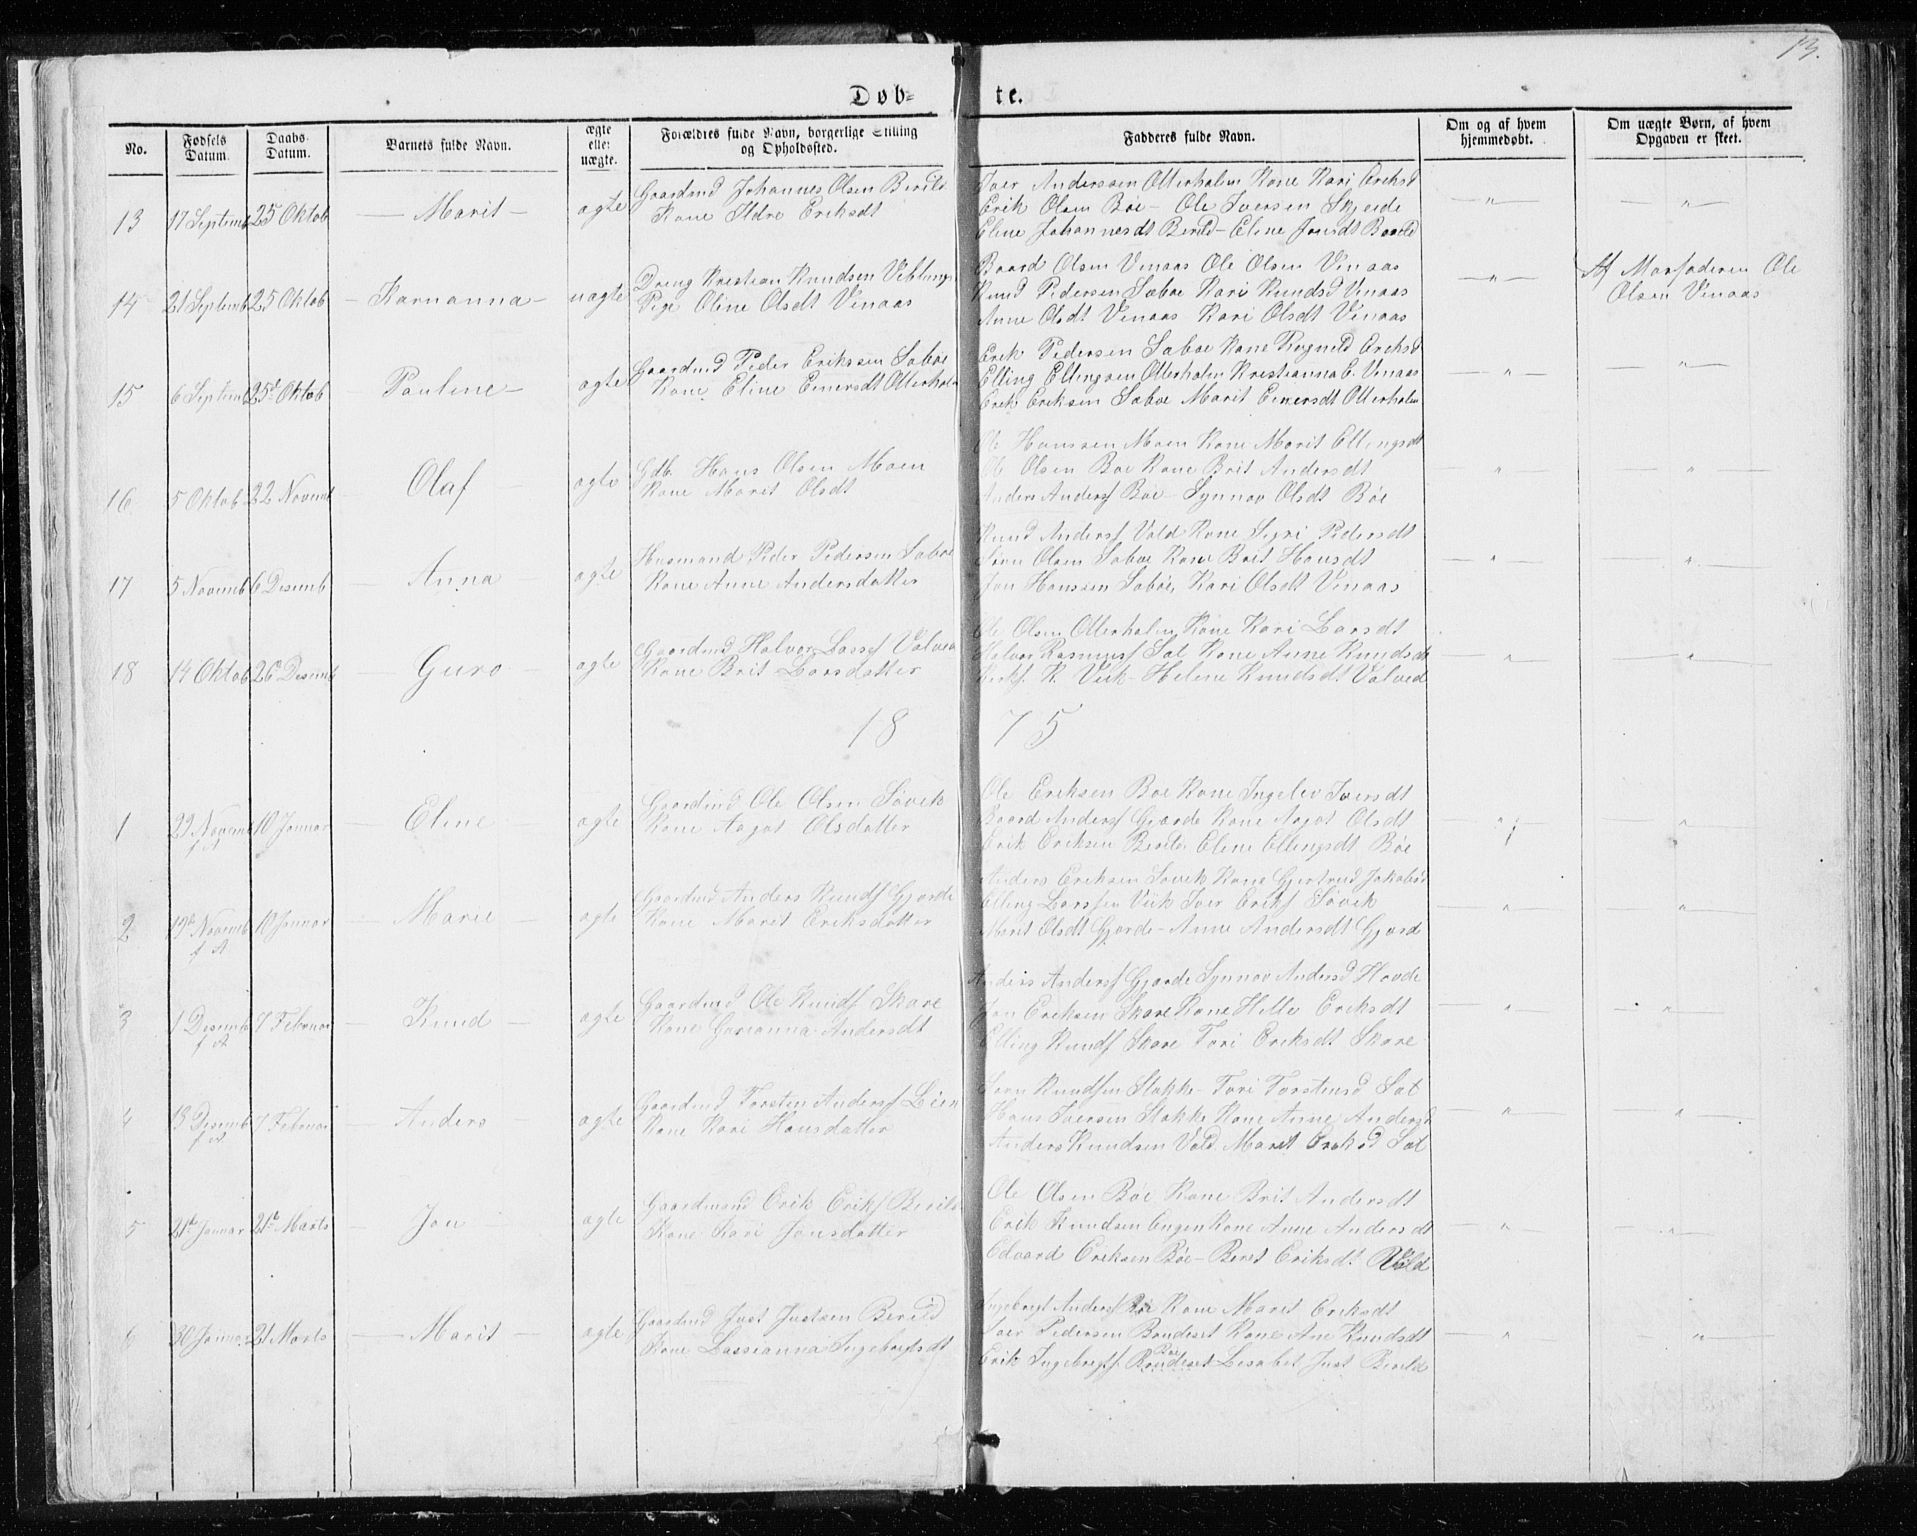 13.
Døb-
te.
No.
Fødsels Datum.
Daabs-Datum.
Barnets fulde Navn.
ægte eller uægte.
Forældres fulde Navn, borgerlige Stilling og Opholdssted.
Fadderes fulde Navn.
Om og af hvem hjemmedøbt.
Om uægte Børn, af hvem Opgaven er skeet.
13 17 Septemb 25 Oktob — Marit — ægte
Gaardmd Johannes Olsen Berild
Kone Ildre Eriksdt
Iver Anderssen Otterholm Kone Kari Eriksd
Erik Olsen Böe – Ole Iversen Skjeide
Eline Johannesdt Berild – Eline Jonsdt Berild
14 21 Septemb 25 Oktob — Karnanna — uægte
Dreng Kristian Knudsen Veblungs
Pige Oline Olsdt Venaas
Baard Olsen Venaas Ole Olsen Venaas
Knud Pedersen Sæbøe Kari Knudsd Venaas
Anne Olsdt Venaas Kari Olsdt Venaas
Af Morfaderen Ole
Olsen Venaas
15 6 Septemb 25d Oktob — Pauline — ægte
Gaardmd Peder Erikssen Sæbøe
Kone Eline Einersdt Otterholm
Erik Pedersen Sæbøe Kone Ragnild Eriksd
Elling Ellingsen Otterholm Kristianna E. Venaas
Erik Eriksen Sæbøe Marit Einersdt Otterholm
16 5 Oktob 22 Novemb Olaf — ægte
Gdb. Hans Olsen Moen
Kone Marit Olsdt
Ole Hanssen Moen Kone Marit Ellingsdt
Ole Olsen Böe Kone Brit Andersdt
Anders Andersf Böe – Synnøv Olsdt Böe
17 5 Novemb 6 Desemb — Anna ægte
Husmand Peder Pedersen Sæbøe
Kone Anne Andersdatter
Knud Andersf Vold Kone Sigri Pedersdt
Sivert Olsen Sæbøe Kone Brit Hansdt
Jon Hanssen Sæbøe, Kari Olsdt Venaas
18 14 Oktob 26d Desemb — Guro — ægte
Gaardmd Halvor Lassef Valved
Kone Brit Larsdatter
Ole Olsen Otterholm Kone Kari Larsdt
Halvor Rasmusf Sæt Kone Anne Knudsdt
K. Viik – Helene Knudsdt Valved
1875
1 29 Novemb f A 10 Januar — Eline — ægte
Gaardmd Ole Olsen Søvik
Kone Aagot Olsdatter
Ole Eriksen Böe Kone Ingelev Iversdt
Baard Andersf Gjærde Kone Aagot Olsdt
Erik Eriksen Berild Eline Ellingsdt Böe
2 19d Novemb f A 10 Januar — Marie — ægte
Gaardmd Anders Knudsf Gjærde
Kone Marit Eriksdatter
Anders Eriksen Søvik Kone Gjertrud Jakobsd
Elling Larssen Viik Iver Eriksf Søvik
Marit Olsdt Gjærde – Anne Andersdt Gjærde
3 1 Desemb f A 7 Februar — Knud — ægte
Gaardmd Ole Knudsf Skare
Kone Gurianna Andersdt
Anders Andersf Gjærde Synnøv Andersd Hovde
Jon Eriksen Skare Kone Hille Eriksdt
Elling Knudsf Skare Tori Eriksdt Skare
4 13 Desemb f A 7 Februar — Anders — ægte
Gaardmd Torsten Andersf Leien
Kone Kari Hansdatter
Knudssen Stokke – Tori Torstensd Sæt
Hans Iversen Stokke Kone Anne Andersd
Anders Knudsen Vold Marit Eriksd Sæt
5 21d Januar 21d Marts — Jon — ægte
Gaardmand Erik Eriksf Berild
Kone Kari Jonsdatter
Ole Olsen Böe Kone Brit Andersdt
Erik Knudsen Engen Kone Anne Andersdt
Edvard Eriksen Böe – Beret Eriksdt Vold
6 30 Januar 21 Marts — Marit — ægte
Gaardmd Just Justsen Berild
Kone Lassianna Ingebrigtsdt
Ingebrigt Andersf Böe Kone Marit Eriksdt
Iver Pedersen Bondeset Kone Ane Knudsdt
Erik Ingebrigtsf Böe Lisabet Just Berild